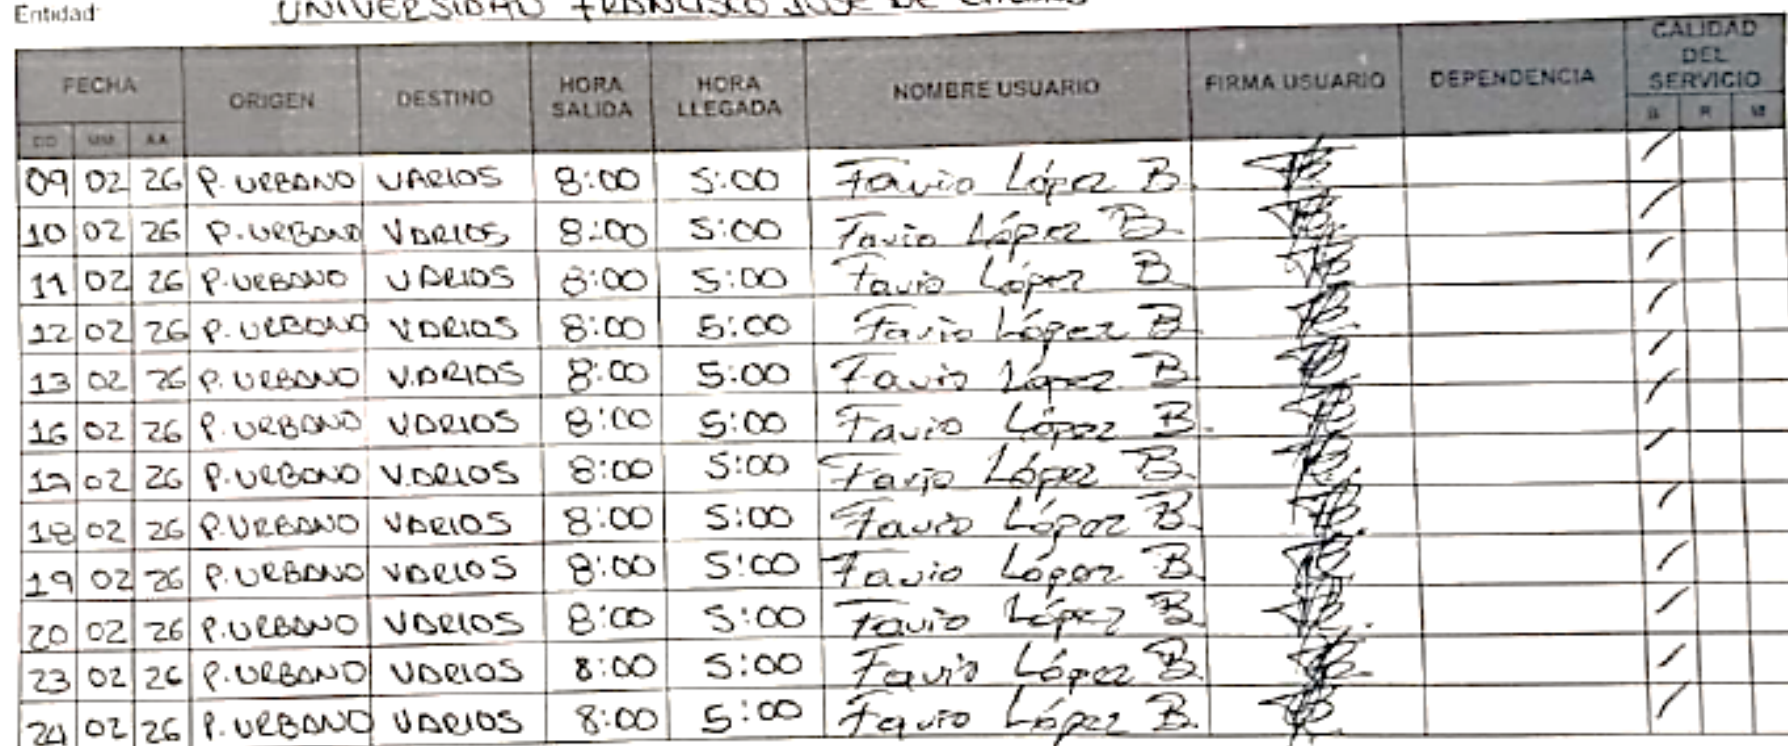 Entidad: UNIVERSIDAD FRANCISCO JOSE DE CALDAS
FECHA ORIGEN DESTINO HORA SALIDA HORA LLEGADA NOMBRE USUARIO FIRMA USUARIO DEPENDENCIA CALIDAD DEL SERVICIO
DD MM AA B R M
09 02 26 P. URBANO VARIOS 8:00 5:00 Favio López B.
10 02 26 P. URBANO VARIOS 8:00 5:00 Favio López B.
11 02 26 P. URBANO VARIOS 8:00 5:00 Favio López B.
12 02 26 P. URBANO VARIOS 8:00 5:00 Favio López B.
13 02 26 P. URBANO VARIOS 8:00 5:00 Favio López B.
16 02 26 P. URBANO VARIOS 8:00 5:00 Favio López B.
17 02 26 P. URBANO VARIOS 8:00 5:00 Favio López B.
18 02 26 P. URBANO VARIOS 8:00 5:00 Favio López B.
19 02 26 P. URBANO VARIOS 8:00 5:00 Favio López B.
20 02 26 P. URBANO VARIOS 8:00 5:00 Favio López B.
23 02 26 P. URBANO VARIOS 8:00 5:00 Favio López B.
24 02 26 P. URBANO VARIOS 8:00 5:00 Favio López B.